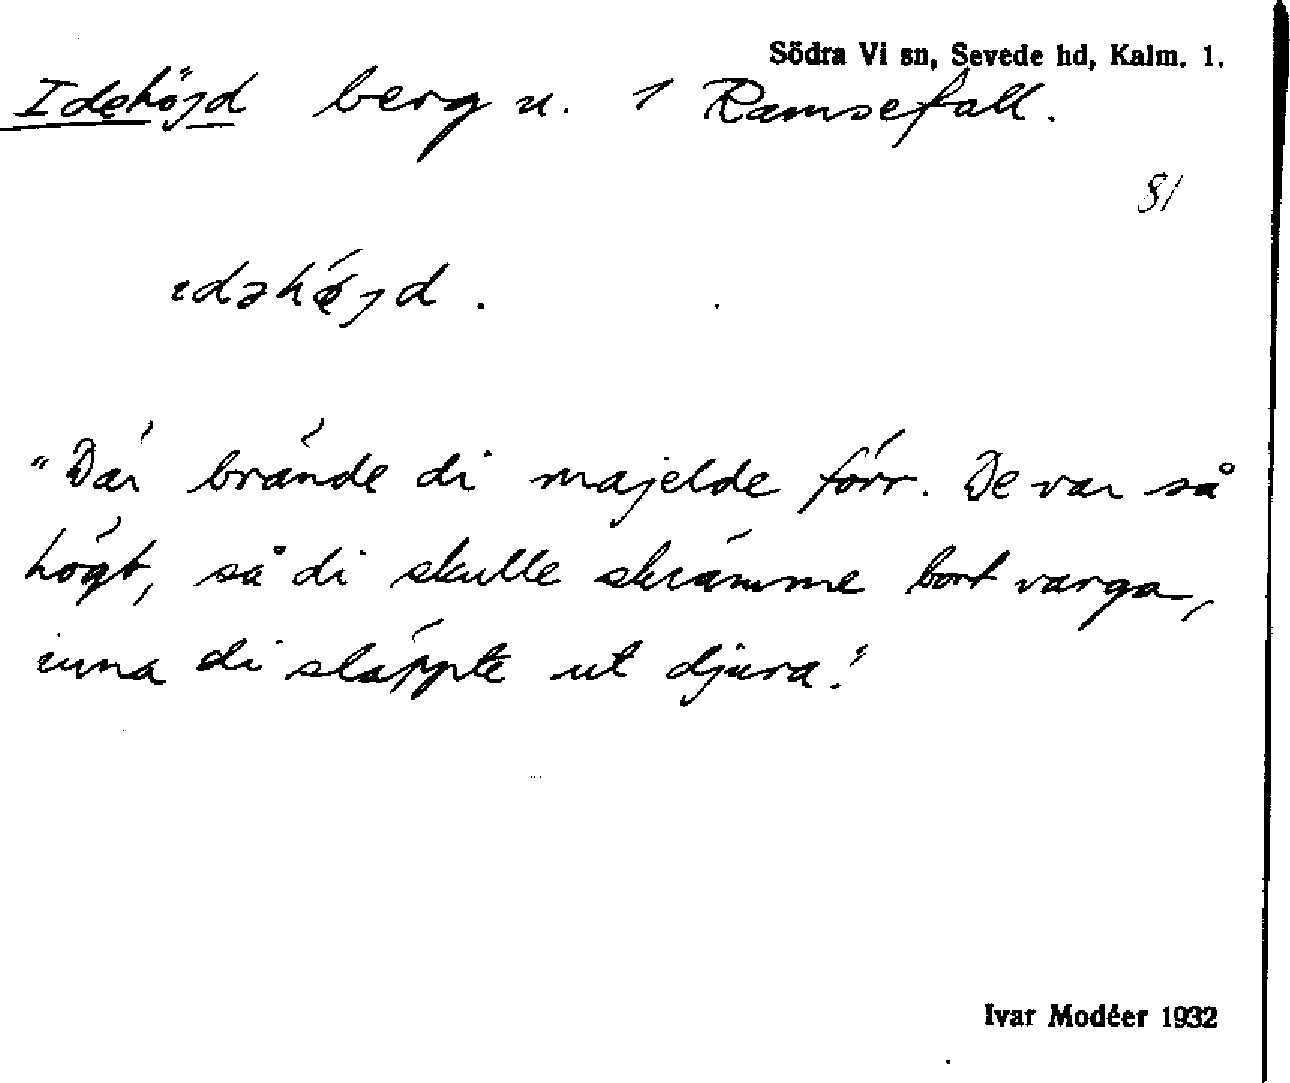 Södra Vi sn, Sevede hd, Kalm. l.
Idehöjd berg u. 1 Ramsefall.
81
idəhǿjd.
"Där brände di majelde förr. De var så
högt, så di skulle skrämme bort varga,
inna di släppte ut djura."
Ivar Modéer 1932